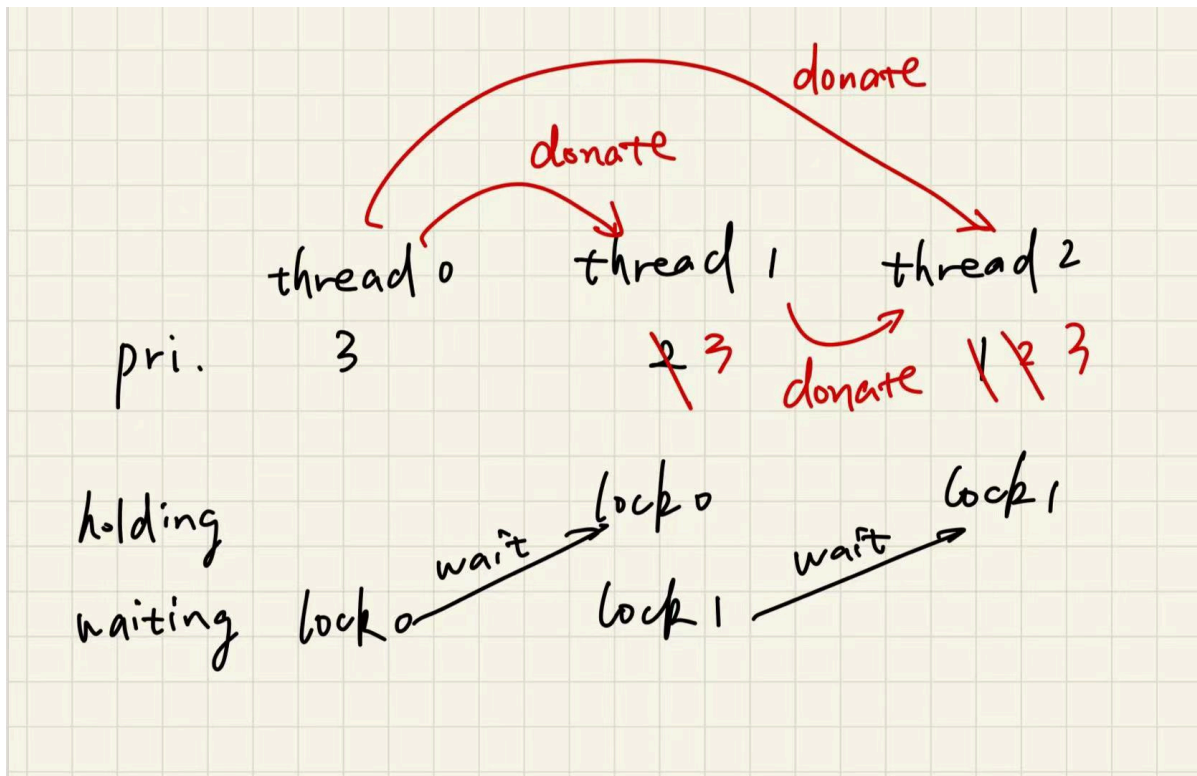 donate
donate
thread 0 thread 1 thread 2
pri. 3 2 3 donate 1 2 3
holding lock 0 lock 1
wait wait
waiting lock 0 lock 1